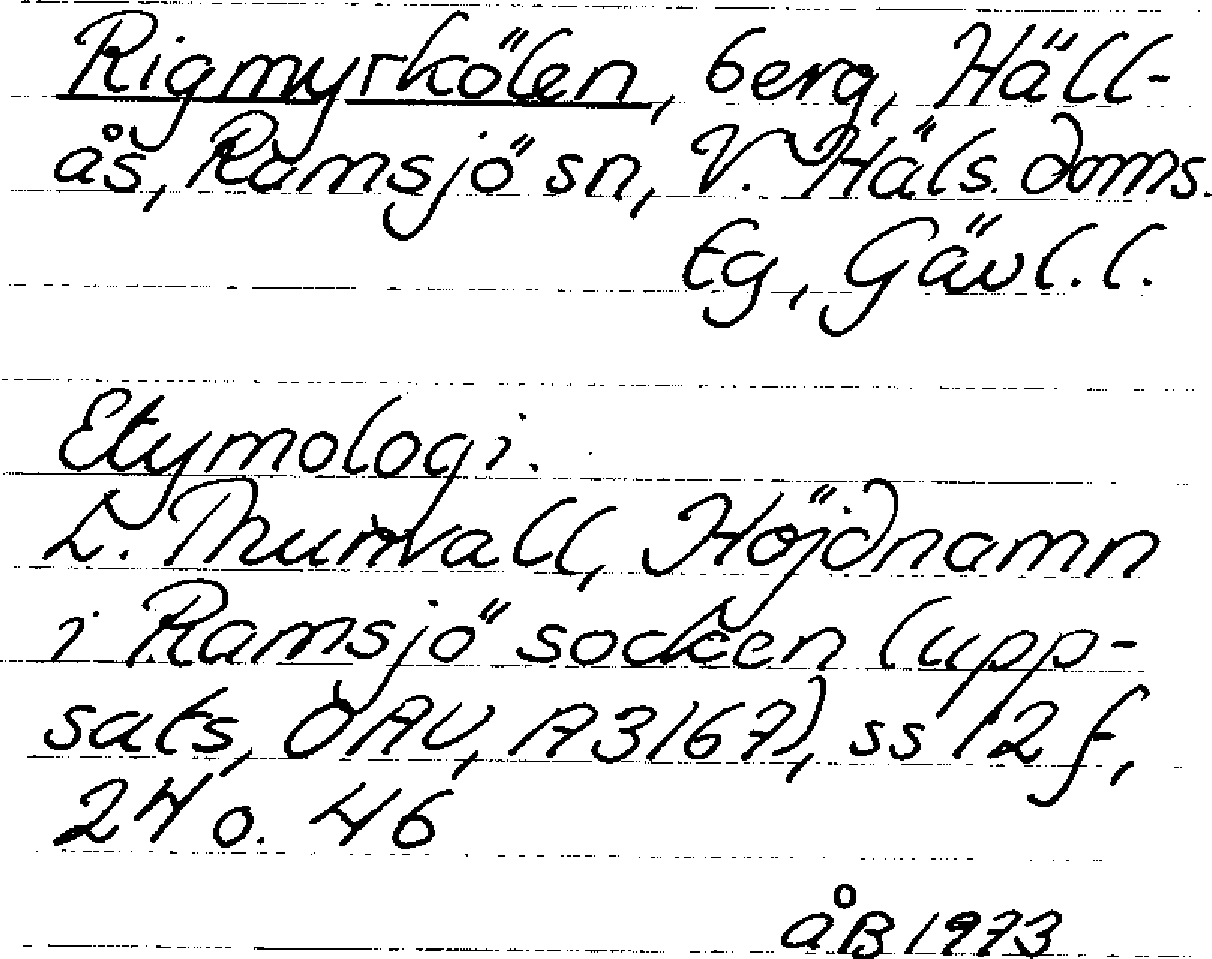 Rigmyrkölen, berg, Häll-
ås, Ramsjö sn, V. Häls. doms.
tg, Gävl. l.
Etymologi.
L. Thunvall, Höjdnamn
i Ramsjö socken (upp-
sats, ÖAU, A3167), ss 12 f,
24 o. 46
åB 1973